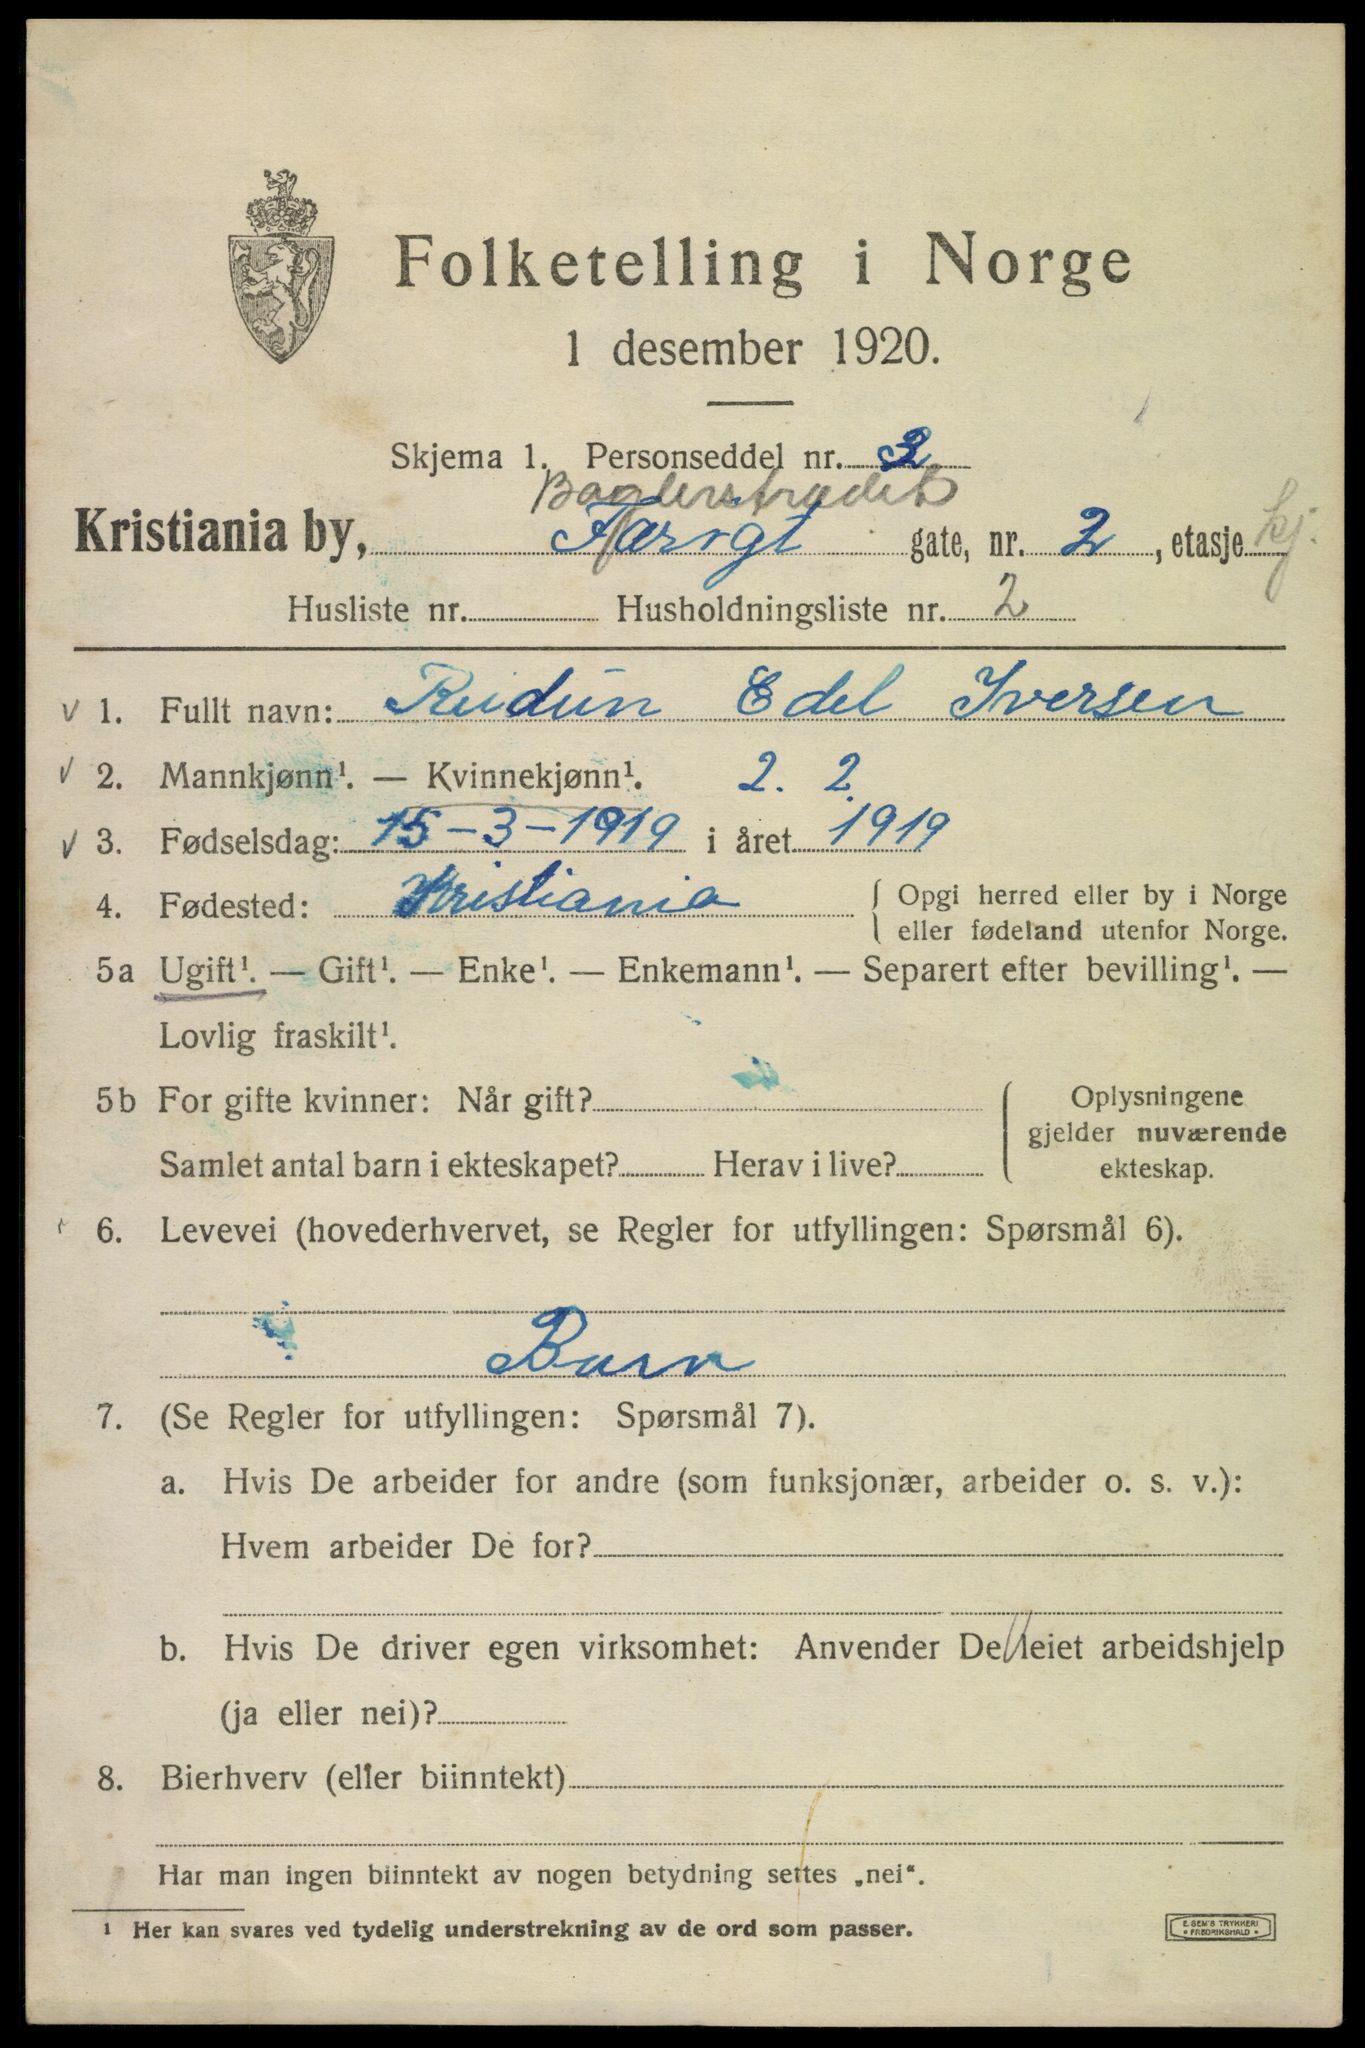 Folketelling i Norge
1 desember 1920.
Skjema 1. Personseddel nr. 3
Kristiania by, gate, nr. 2, etasje kj.
Husliste nr. Husholdningsliste nr. 2
1. Fullt navn: Reidun Edel Iversen
2. Mannkjønn¹. — Kvinnekjønn¹. 2. 2.
3. Fødselsdag: 15-3-1919 i året 1919
4. Fødested: Kristiania { Opgi herred eller by i Norge
eller fødeland utenfor Norge.
5a Ugift¹. — Gift¹. — Enke¹. — Enkemann¹. — Separert efter bevilling¹. —
Lovlig fraskilt¹.
5b For gifte kvinner: Når gift?
Samlet antal barn i ekteskapet? Herav i live?
Oplysningene
gjelder nuværende
ekteskap.
6. Levevei (hovederhvervet, se Regler for utfyllingen: Spørsmål 6).
Barn
7. (Se Regler for utfyllingen: Spørsmål 7).
a. Hvis De arbeider for andre (som funksjonær, arbeider o. s. v.):
Hvem arbeider De for?
b. Hvis De driver egen virksomhet: Anvender De leiet arbeidshjelp
(ja eller nei)?
8. Bierhverv (eller biinntekt)
Har man ingen biinntekt av nogen betydning settes „nei“.
¹ Her kan svares ved tydelig understrekning av de ord som passer.
E. SEM'S TRYKKERI
* FREDRIKSHALD *